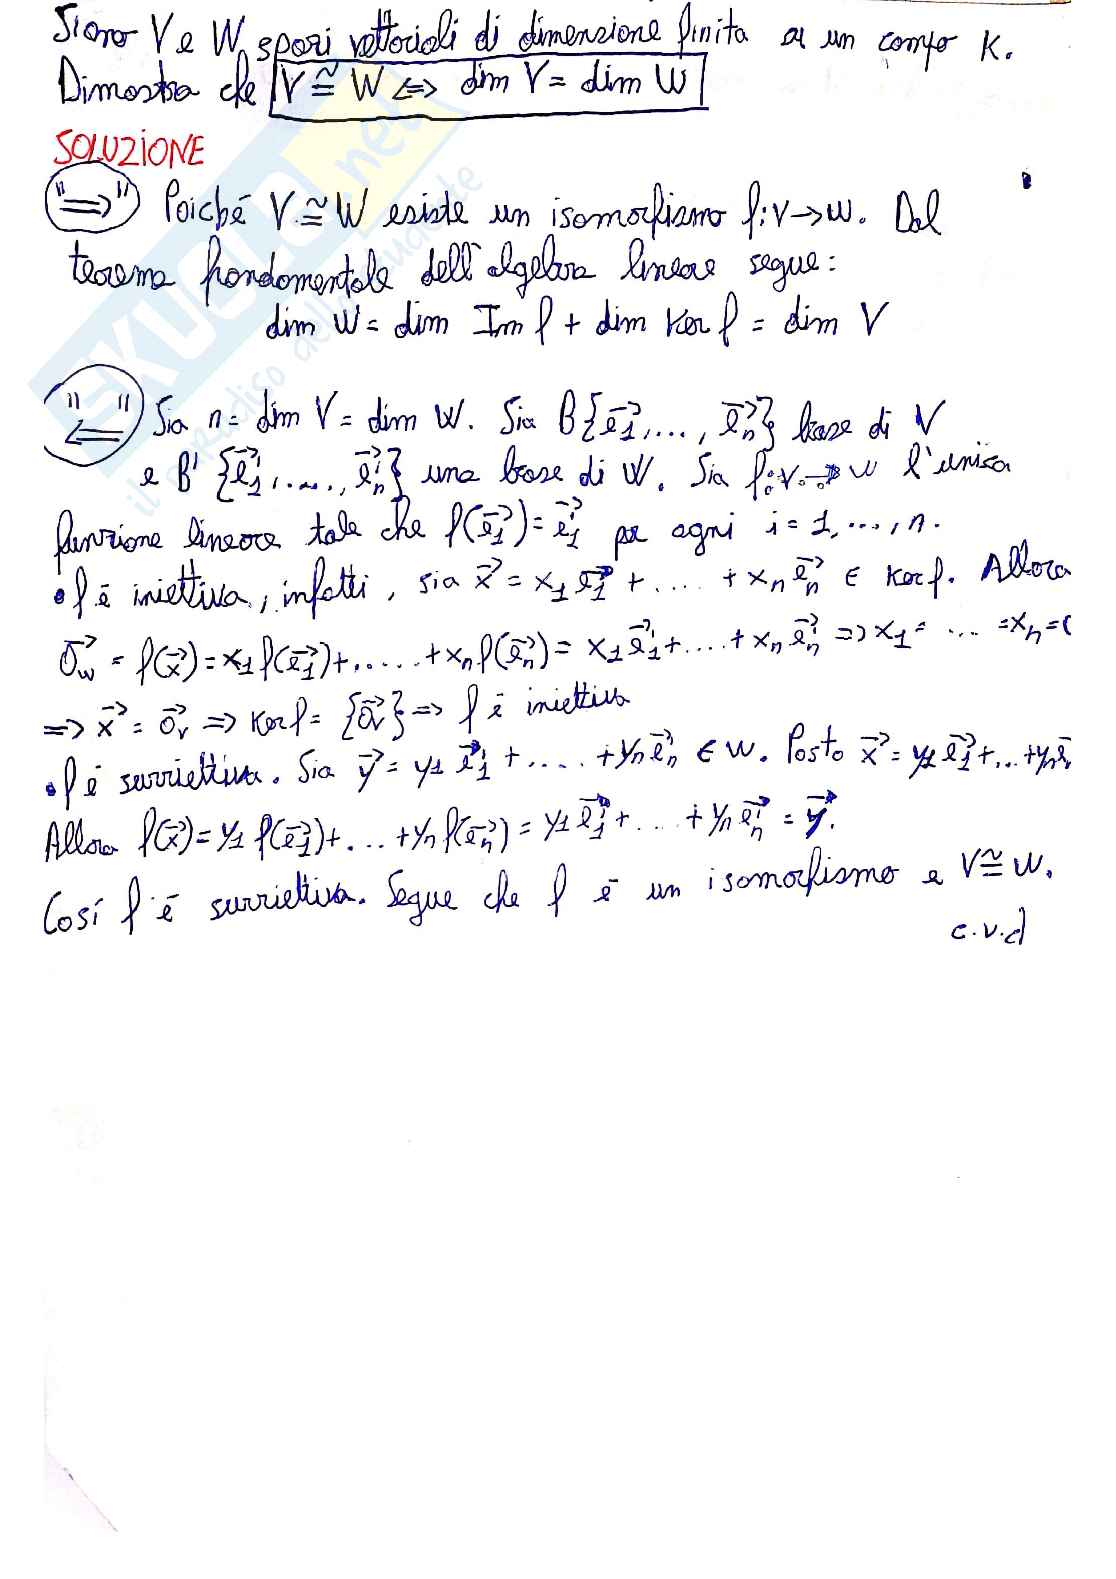 Siano V e W spazi vettoriali di dimensione finita su un campo K.
Dimostra che V ≅ W ⇔ dim V = dim W
SOLUZIONE
"⇒" Poiché V ≅ W esiste un isomorfismo f: V → W. Dal
teorema fondamentale dell'algebra lineare segue:
dim W = dim Im f + dim Ker f = dim V
"⇐" Sia n = dim V = dim W. Sia B{e⃗1, ..., e⃗n} base di V
e B' {e⃗'1, ...., e⃗'n} una base di W. Sia f: V → W l'unica
funzione lineare tale che f(e⃗1) = e⃗'1 per ogni i = 1, ..., n.
• f é iniettiva, infatti, sia x⃗ = x1 e⃗1 + .... + xn e⃗n ∈ Ker f. Allora
0⃗w = f(x⃗) = x1 f(e⃗1) + ..... + xn f(e⃗n) = x1 e⃗'1 + .... + xn e⃗'n => x1 = ... = xn = 0
=> x⃗ = 0⃗v => Ker f = {0⃗v} => f é iniettiva
• f é surriettiva. Sia y⃗ = y1 e⃗'1 + .... + yn e⃗'n ∈ W. Posto x⃗ = y1 e⃗1 + ... + yn e⃗
Allora f(x⃗) = y1 f(e⃗1) + ... + yn f(e⃗n) = y1 e⃗'1 + ... + yn e⃗'n = y⃗.
Cosí f é surriettiva. Segue che f é un isomorfismo e V ≅ W.
c.v.d
SKUOLA.net
il paradiso dello studente